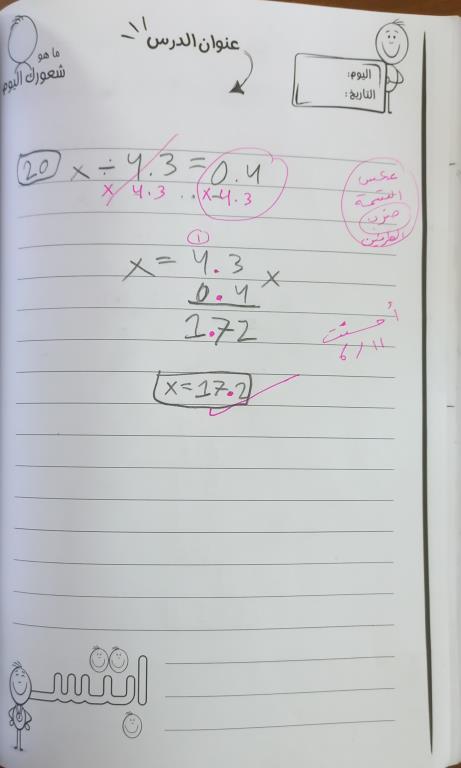 ما هو
شعورك اليوم
عنوان الدرس
اليوم:
التاريخ:
20
x ÷ 4.3 = 0.4
x 4.3 .. x 4.3
عكس
القسمة
ضرب
الطرفين
1
x = 4.3 x
0.4
1.72
أحسنت
6/11
x = 17.2
ابتسم